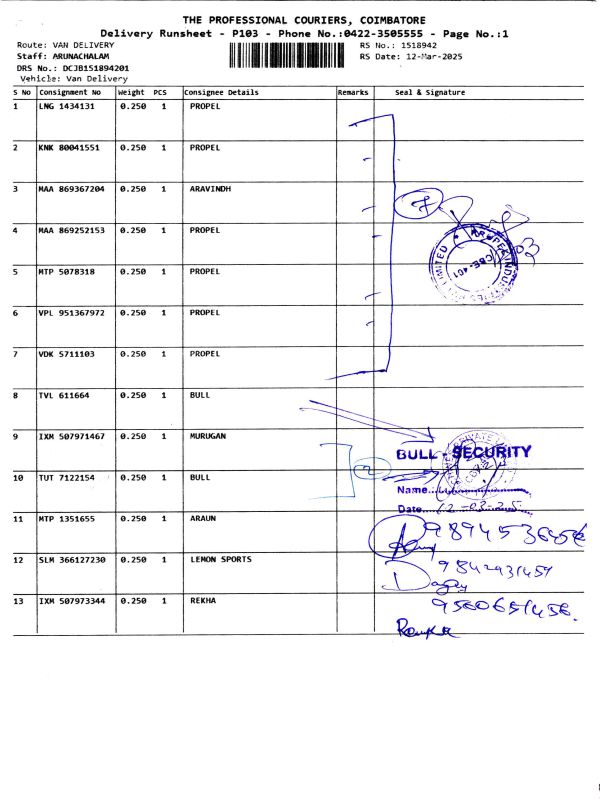 THE PROFESSIONAL COURIERS, COIMBATORE
Delivery Runsheet - P103 - Phone No.:0422-3505555 - Page No.:1
Route: VAN DELIVERY RS No.: 1518942
Staff: ARUNACHALAM RS Date: 12-Mar-2025
DRS No.: DCJB151894201
Vehicle: Van Delivery
S No Consignment No Weight PCS Consignee Details Remarks Seal & Signature
1 LNG 1434131 0.250 1 PROPEL
2 KNK 80041551 0.250 1 PROPEL
3 MAA 869367204 0.250 1 ARAVINDH
7
4 MAA 869252153 0.250 1 PROPEL
5 MTP 5078318 0.250 1 PROPEL
CBE-401
6 VPL 951367972 0.250 1 PROPEL
7 VDK 5711103 0.250 1 PROPEL
8 TVL 611664 0.250 1 BULL
9 IXM 507971467 0.250 1 MURUGAN
BULL - SECURITY
2
10 TUT 7122154 0.250 1 BULL
Name
Date 12-03-25
11 MTP 1351655 0.250 1 ARAUN
12 SLM 366127230 0.250 1 LEMON SPORTS
13 IXM 507973344 0.250 1 REKHA